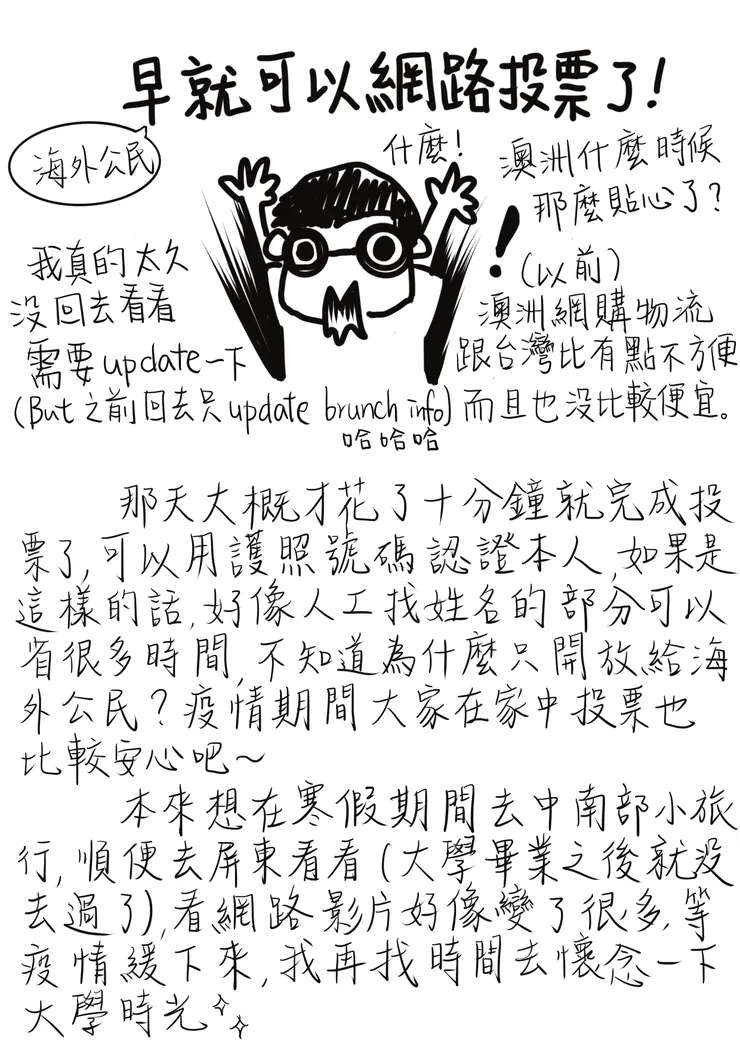 早就可以網路投票了!
海外公民
什麼!
澳洲什麼時候
那麼貼心了?
我真的太久
沒回去看看
需要update一下
(But 之前回去只update brunch info)
哈哈哈
!
(以前)
澳洲網購物流
跟台灣比有點不方便
而且也沒比較便宜。
那天大概才花了十分鐘就完成投
票了,可以用護照號碼認證本人,如果是
這樣的話,好像人工找姓名的部分可以
省很多時間,不知道為什麼只開放給海
外公民?疫情期間大家在家中投票也
比較安心吧~
本來想在寒假期間去中南部小旅
行,順便去屏東看看(大學畢業之後就沒
去過了),看網路影片好像變了很多,等
疫情緩下來,我再找時間去懷念一下
大學時光